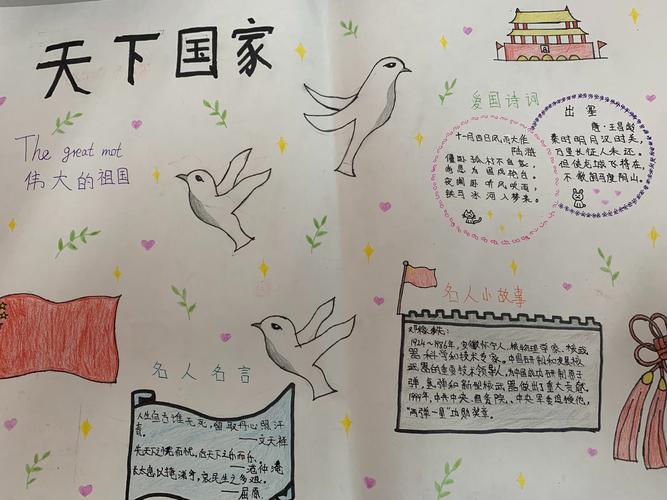 天下国家
The great mot
伟大的祖国
爱国诗词
十一月四日风雨大作
陆游
僵卧孤村不自哀，
尚思为国戍轮台。
夜阑卧听风吹雨，
铁马冰河入梦来。
出塞
唐·王昌龄
秦时明月汉时关，
万里长征人未还。
但使龙城飞将在，
不教胡马度阴山。
名人名言
人生自古谁无死，留取丹心照汗
青。
——文天祥
先天下之忧而忧，后天下之乐而乐。
太息以掩涕兮，哀民生之多艰。
——屈原
名人小故事
邓稼先：
1924~1986年，安徽怀宁人，核物理学家、核武
器科学和技术专家。中国研制和发展核
武器的重要技术领导人，为中国成功研制原子
弹，氢弹和新型核武器做出了重大贡献。
1999年，中共中央、国务院、中央军委追授他，
"两弹一星"功勋奖章。